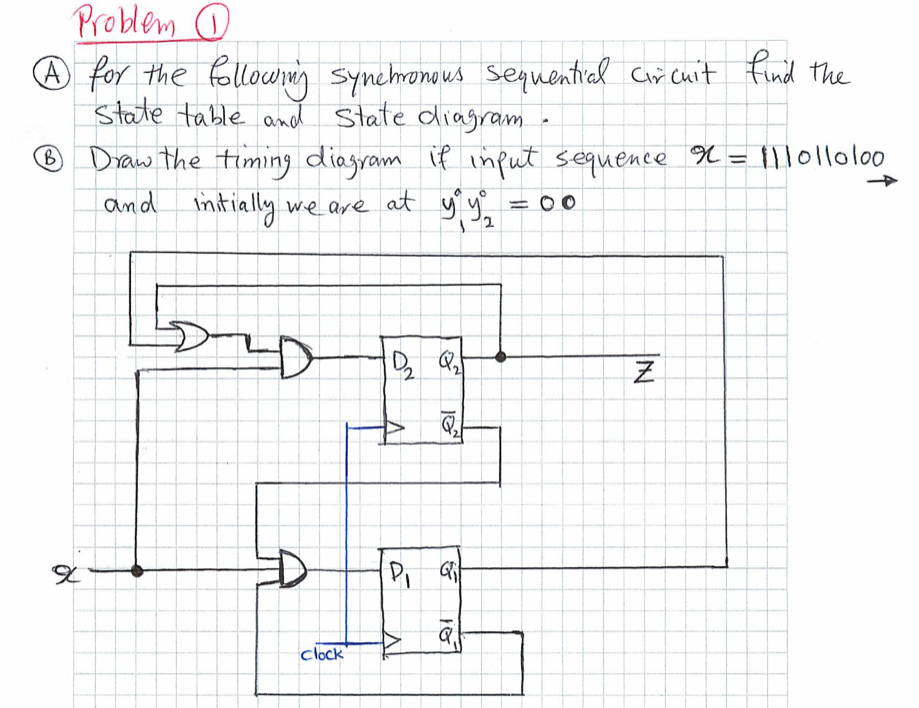 Problem ①
Ⓐ for the following synchronous sequential circuit find the
state table and state diagram.
Ⓑ Draw the timing diagram if input sequence x = 1110110100
→
and initially we are at y₁⁰y₂⁰ = 00
D₂ Q₂
Z
Q̅₂
x
D₁ Q₁
Q̅₁
clock